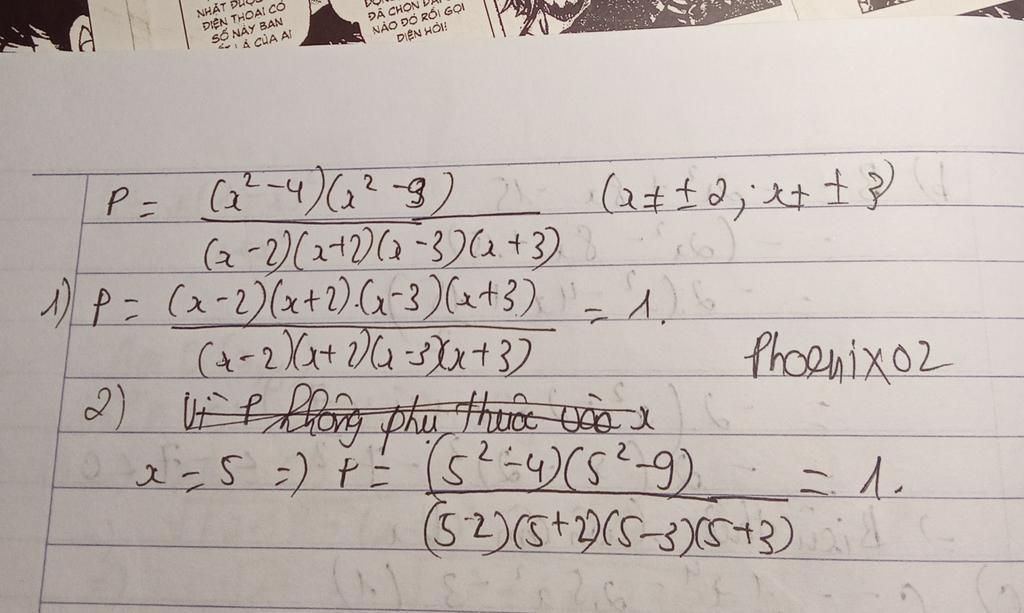 NHẤT ĐƯỢC
ĐIỆN THOẠI CÓ
SỐ NÀY BẠN
LÀ CỦA AI
ĐÃ CHỌN
NÀO ĐÓ RỒI, GỌI
ĐIỆN HỎI!
P = (x² - 4)(x² - 9) / (x-2)(x+2)(x-3)(x+3) (x ≠ ± 2 ; x ≠ ± 3)
1) P = (x-2)(x+2).(x-3)(x+3) / (x-2)(x+2)(x-3)(x+3) = 1.
Phoenix02
2) Vì P không phụ thuộc vào x
x = 5 => P = (5² - 4)(5² - 9) / (5-2)(5+2)(5-3)(5+3) = 1.